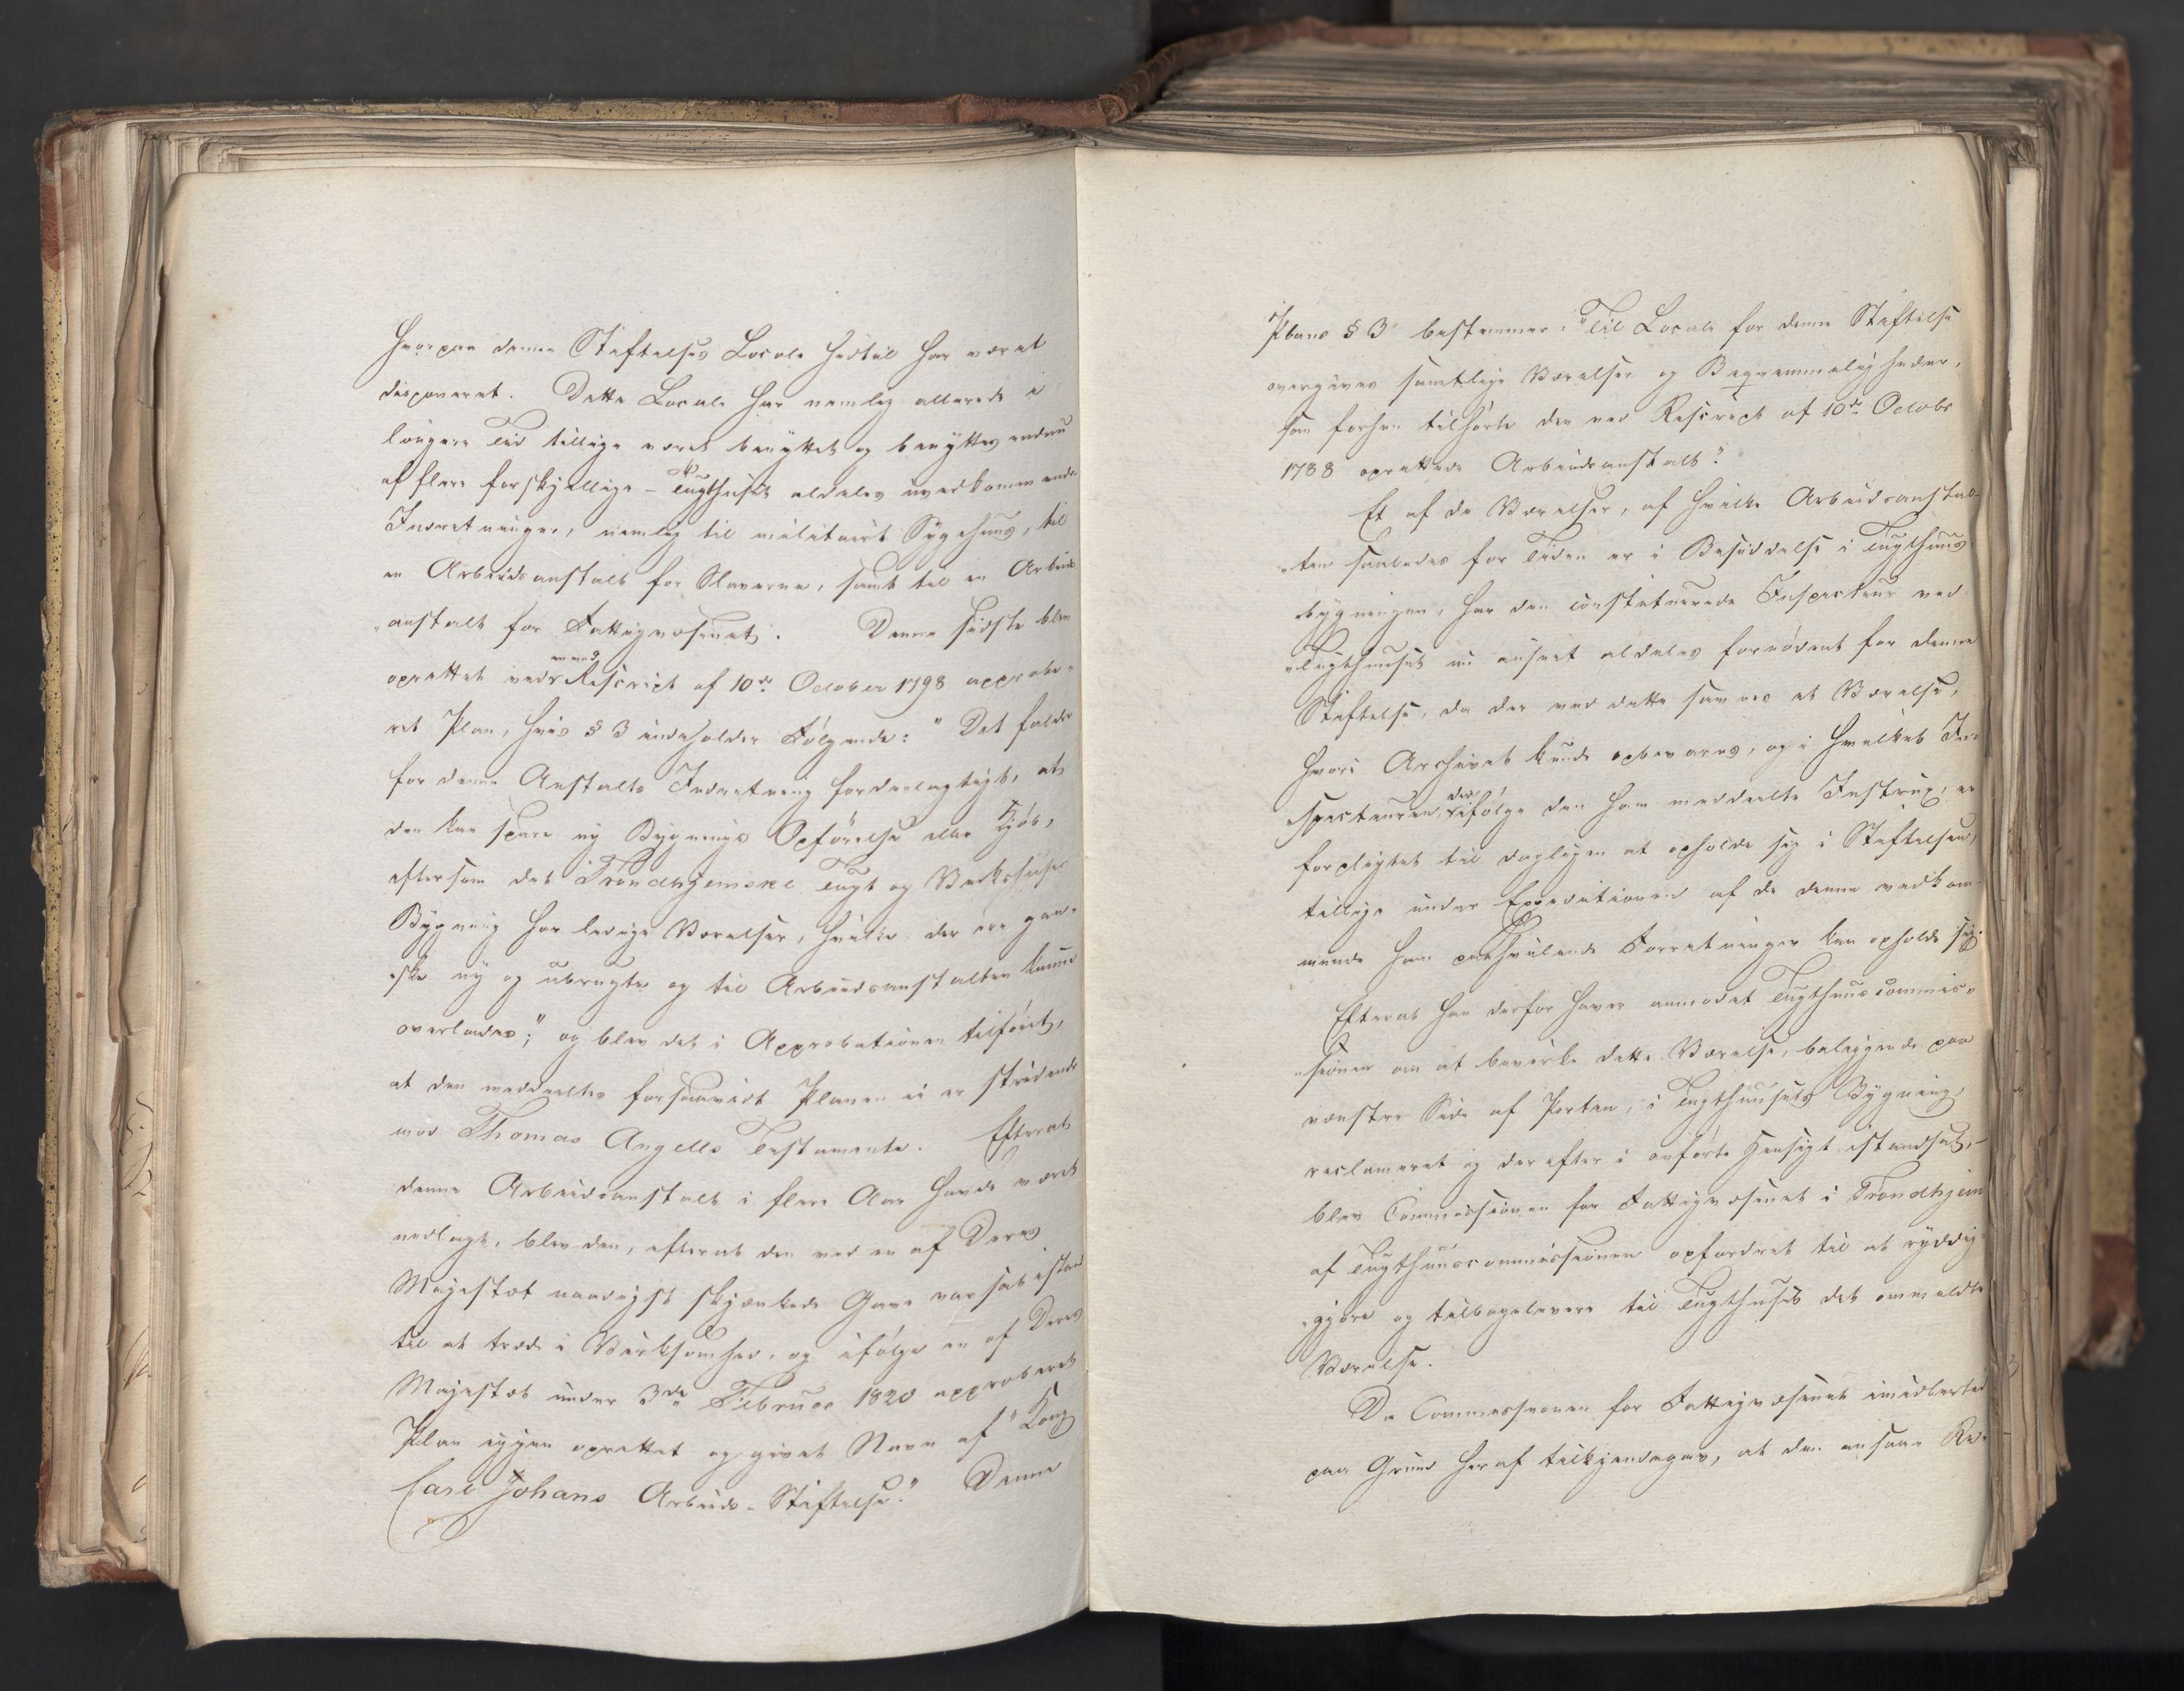 hvorpaa denne Stiftelses Locale hidtil har været
disponeret. Dette Locale har nemlig allerede i
længere Tid tillige været benyttet og benyttes endnu
af flere forskjellige – Tugthuset aldeles uvedkommende
Indretninger, nemlig til militairt Sygehuus, til
en Arbeidsanstalt for Slaverne, samt til en Arbeids
anstalt for Fattigvæsenet. Denne sidste blev
oprettet ved en ved Rescript af 10de October 1798 approbe-
ret Plan, hvis § 3 indeholder Følgende: "Det falder
for denne Anstalts Indretning fordeelagtigt, at
den kan spare ny Bygnings Opførelse eller Kjøb,
eftersom det Trondhjemske Tugt og Værkhuses
Bygning har ledige Værelser, hvilke der ere gan-
ske ny og ubrugte og til Arbeidsanstalten kunne
overlades;" og blev det i Approbationen tilføiet,
at den meddeeltes forsaavidt Planen ei er stridende
mod Thomas Angells Testamente. Efterat
denne Arbeidsanstalt i flere Aar havde været
nedlagt, blev den, efterat den ved en af Deres
Majestæt naadigst skjænkede Gave var sat istand
til at træde i Virksomhed, og ifølge en af Deres
Majestæt under 3de Februar 1820 approberet
Plan igjen oprettet og givet Navn af "Kong
Carl Johans Arbeids-Stiftelse." Denne
Plans § 3 bestemmer: "Til Locale for denne Stiftelse
overgives samtlige Værelser og Beqvemmeligheder,
som forhen tilhørte den ved Rescript af 10de Octobr
1788 oprettede Arbeidsanstalt."
Et af de Værelser, af hvilke Arbeidsanstal-
ten saaledes for Tiden er i Besiddelse i Tugthuus-
bygningen, har den constituerede Inspecteur ved
Tugthuuset nu anseet aldeles fornødent for denne
Stiftelse, da der ved dette savnes et Værelse,
hvori Archivet kunde opbevares, og i hvilket In-
specteuren, der ifølge den ham meddeelte Instrux, er
forpligtet til dagligen at opholde sig i Stiftelsen,
tillige under Expeditionen af de denne vedkom-
mende ham paahvilende Forretninger kan opholde sig.
Efterat han derfor haver anmodet Tugthuuscommis-
sionen om at bevirke dette Værelse, beliggende paa
venstre Side af Porten, i Tugthuusets Bygning,
reclameret og derefter i anførte Hensigt istandsat, –
blev Commissionen for Fattigvæsenet i Trondhjem
af Tugthuuscommissionen opfordret til at ryddig-
gjøre og tilbagelevere til Tugthuset det ommeldte
Værelse.
Da Commissionen for Fattigvæsenet imidlertid
paa Grund heraf tilkjendegav, at den ansaae Re-